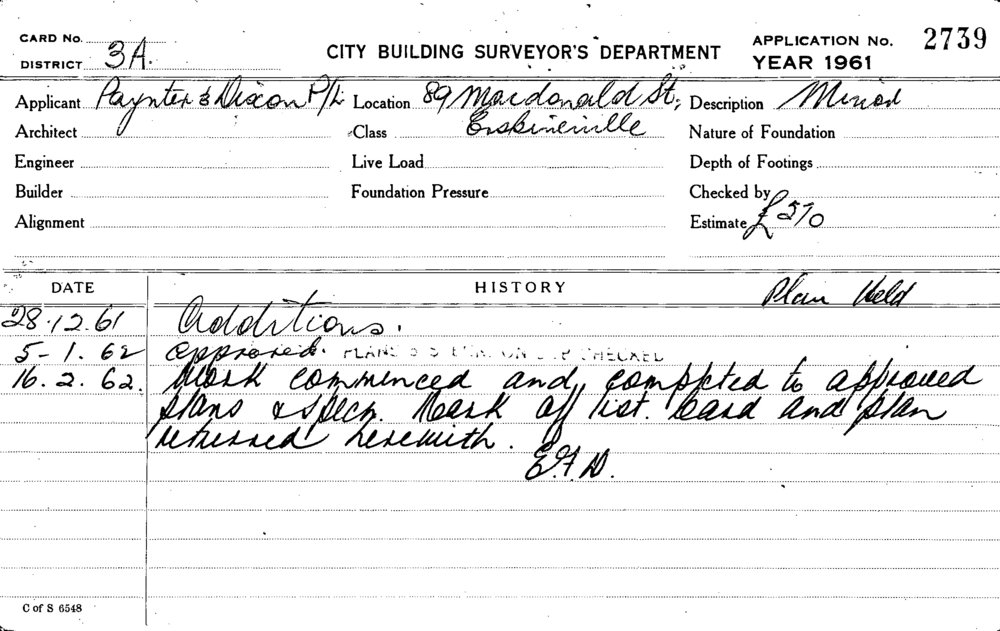 CARD No.
DISTRICT 3A.
CITY BUILDING SURVEYOR'S DEPARTMENT
APPLICATION No. 2739
YEAR 1961
Applicant Paynter & Dixon P/L Location 89 Macdonald St; Description Minor
Architect Class Erskineville Nature of Foundation
Engineer Live Load Depth of Footings
Builder Foundation Pressure Checked by
Alignment Estimate £570
DATE HISTORY Plan Held
28.12.61 Additions.
5-1.62 approved. CHECKED
16.2.62. Work commenced and completed to approved
plans & specn. Mark off list. Card and plan
returned herewith.
E.F.D.
C of S 6548